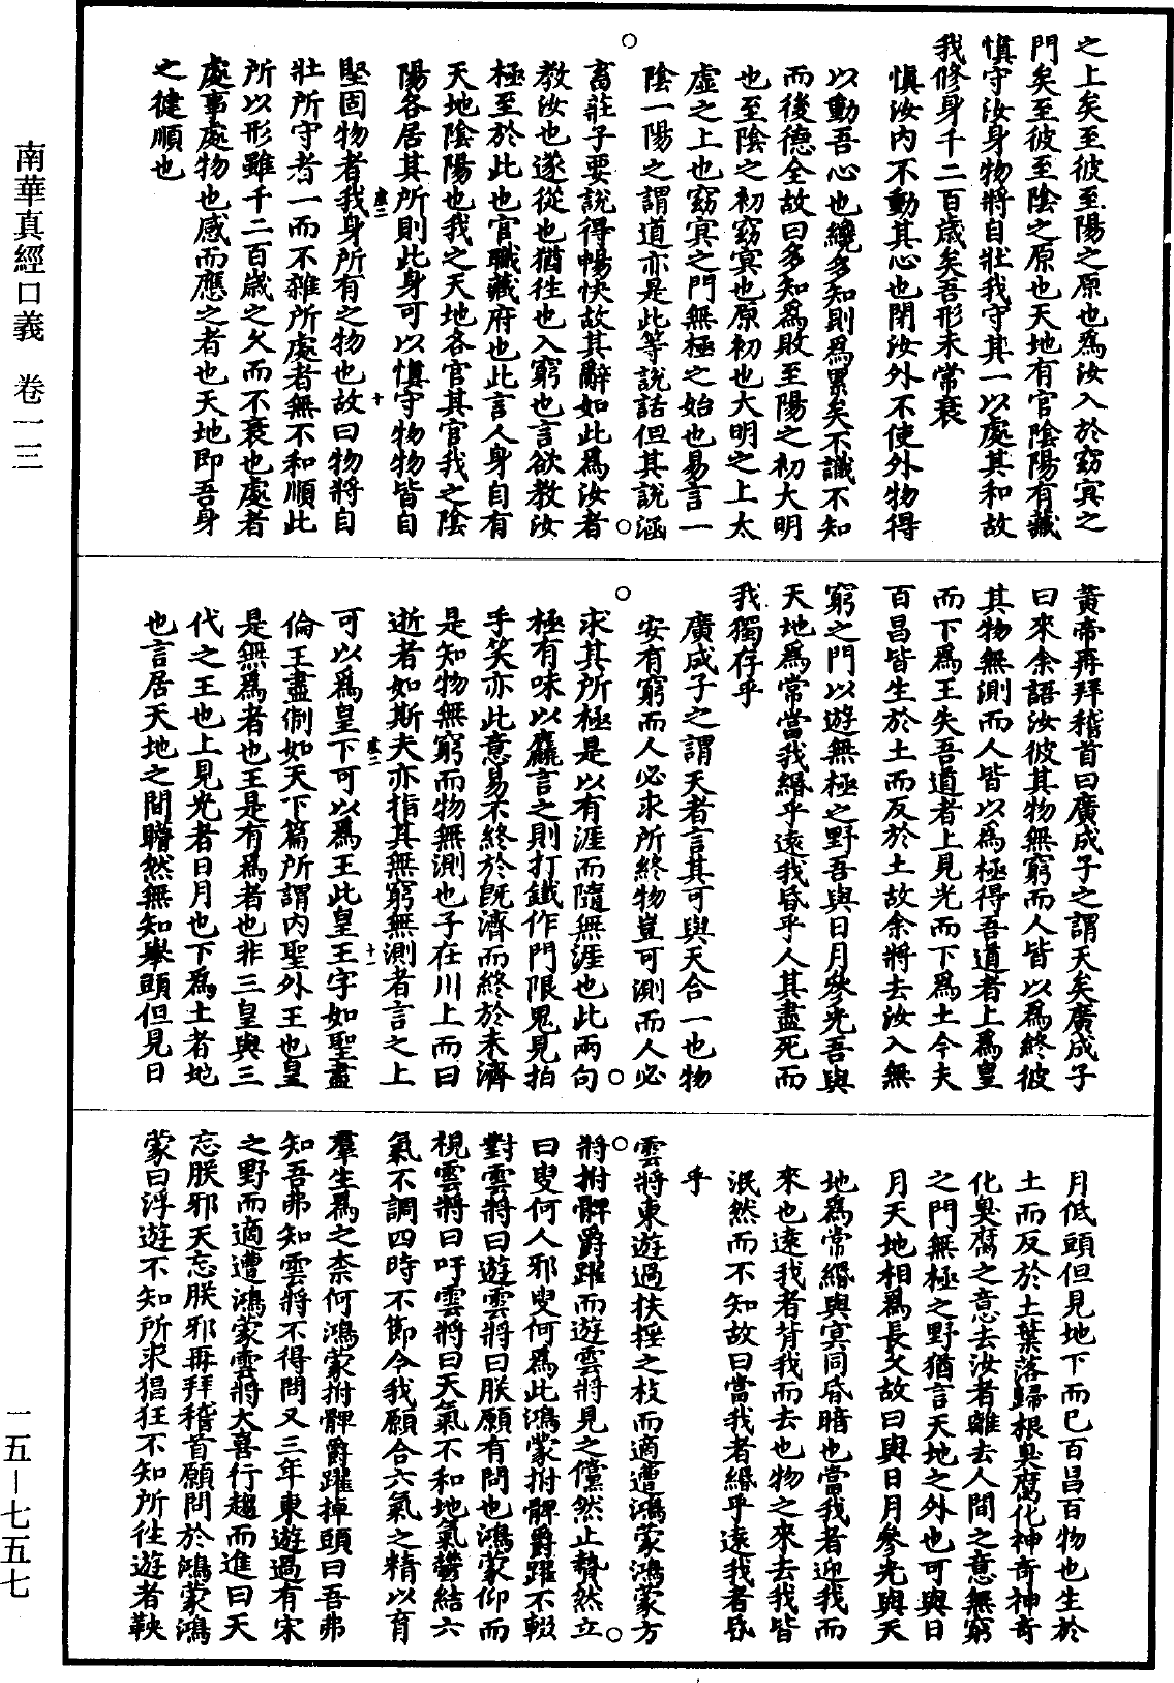 之上矣至彼至陽之原也為汝入於窈冥之
門矣至彼至陰之原也天地有官陰陽有藏
慎守汝身物將自壯我守其一以處其和故
我修身千二百歲矣吾形未常衰
慎汝內不動其心也閉汝外不使外物得
以動吾心也纔多知則為累矣不識不知
而後德全故曰多知為敗至陽之初大明
也至陰之初窈冥也原初也大明之上太
虛之上也窈冥之門無極之始也易言一
陰一陽之謂道亦是此等說話但其說涵
畜莊子要說得暢快故其辭如此為汝者
教汝也遂從也猶往也入窮也言欲教汝
極至於此也官職藏府也此言人身自有
天地陰陽也我之天地各官其官我之陰
陽各居其所則此身可以慎守物物皆自
堅固物者我身所有之物也故曰物將自
壯所守者一而不雜所處者無不和順此
所以形雖千二百歲之久而不衰也處者
處事處物也感而應之者也天地即吾身
之健順也
黃帝再拜稽首曰廣成子之謂天矣廣成子
曰來余語汝彼其物無窮而人皆以為終彼
其物無測而人皆以為極得吾道者上為皇
而下為王失吾道者上見光而下為土今夫
百昌皆生於土而反於土故余將去汝入無
窮之門以遊無極之野吾與日月參光吾與
天地為常當我緡乎遠我昏乎人其盡死而
我獨存乎
廣成子之謂天者言其可與天合一也物
安有窮而人必求所終物豈可測而人必
求其所極是以有涯而隨無涯也此兩句
極有味以麤言之則打鐵作門限鬼見拍
手笑亦此意易不終於既濟而終於未濟
是知物無窮而物無測也子在川上而曰
逝者如斯夫亦指其無窮無測者言之上
可以為皇下可以為王此皇王字如聖盡
倫王盡制如天下篇所謂內聖外王也皇
是無為者也王是有為者也非三皇與三
代之王也上見光者日月也下為土者地
也言居天地之間瞢然無知舉頭但見日
月低頭但見地下而已百昌百物也生於
土而反於土葉落歸根臭腐化神奇神奇
化臭腐之意去汝者離去人間之意無窮
之門無極之野猶言天地之外也可與日
月天地相為長久故曰與日月參光與天
地為常緡與冥同昏暗也當我者迎我而
來也遠我者背我而去也物之來去我皆
泯然而不知故曰當我者緡乎遠我者昏
乎
雲將東遊過扶搖之枝而適遭鴻蒙鴻蒙方
將拊髀爵躍而遊雲將見之儻然止贄然立
曰叟何人邪叟何為此鴻蒙拊髀爵躍不輟
對雲將曰遊雲將曰朕願有問也鴻蒙仰而
視雲將曰吁雲將曰天氣不和地氣鬱結六
氣不調四時不節今我願合六氣之精以育
羣生為之柰何鴻蒙拊髀爵躍掉頭曰吾弗
知吾弗知雲將不得問又三年東遊過有宋
之野而適遭鴻蒙雲將大喜行趨而進曰天
忘朕邪天忘朕邪再拜稽首願問於鴻蒙鴻
蒙曰浮遊不知所求猖狂不知所往遊者鞅
南華真經口義 卷一三
一五—七五七